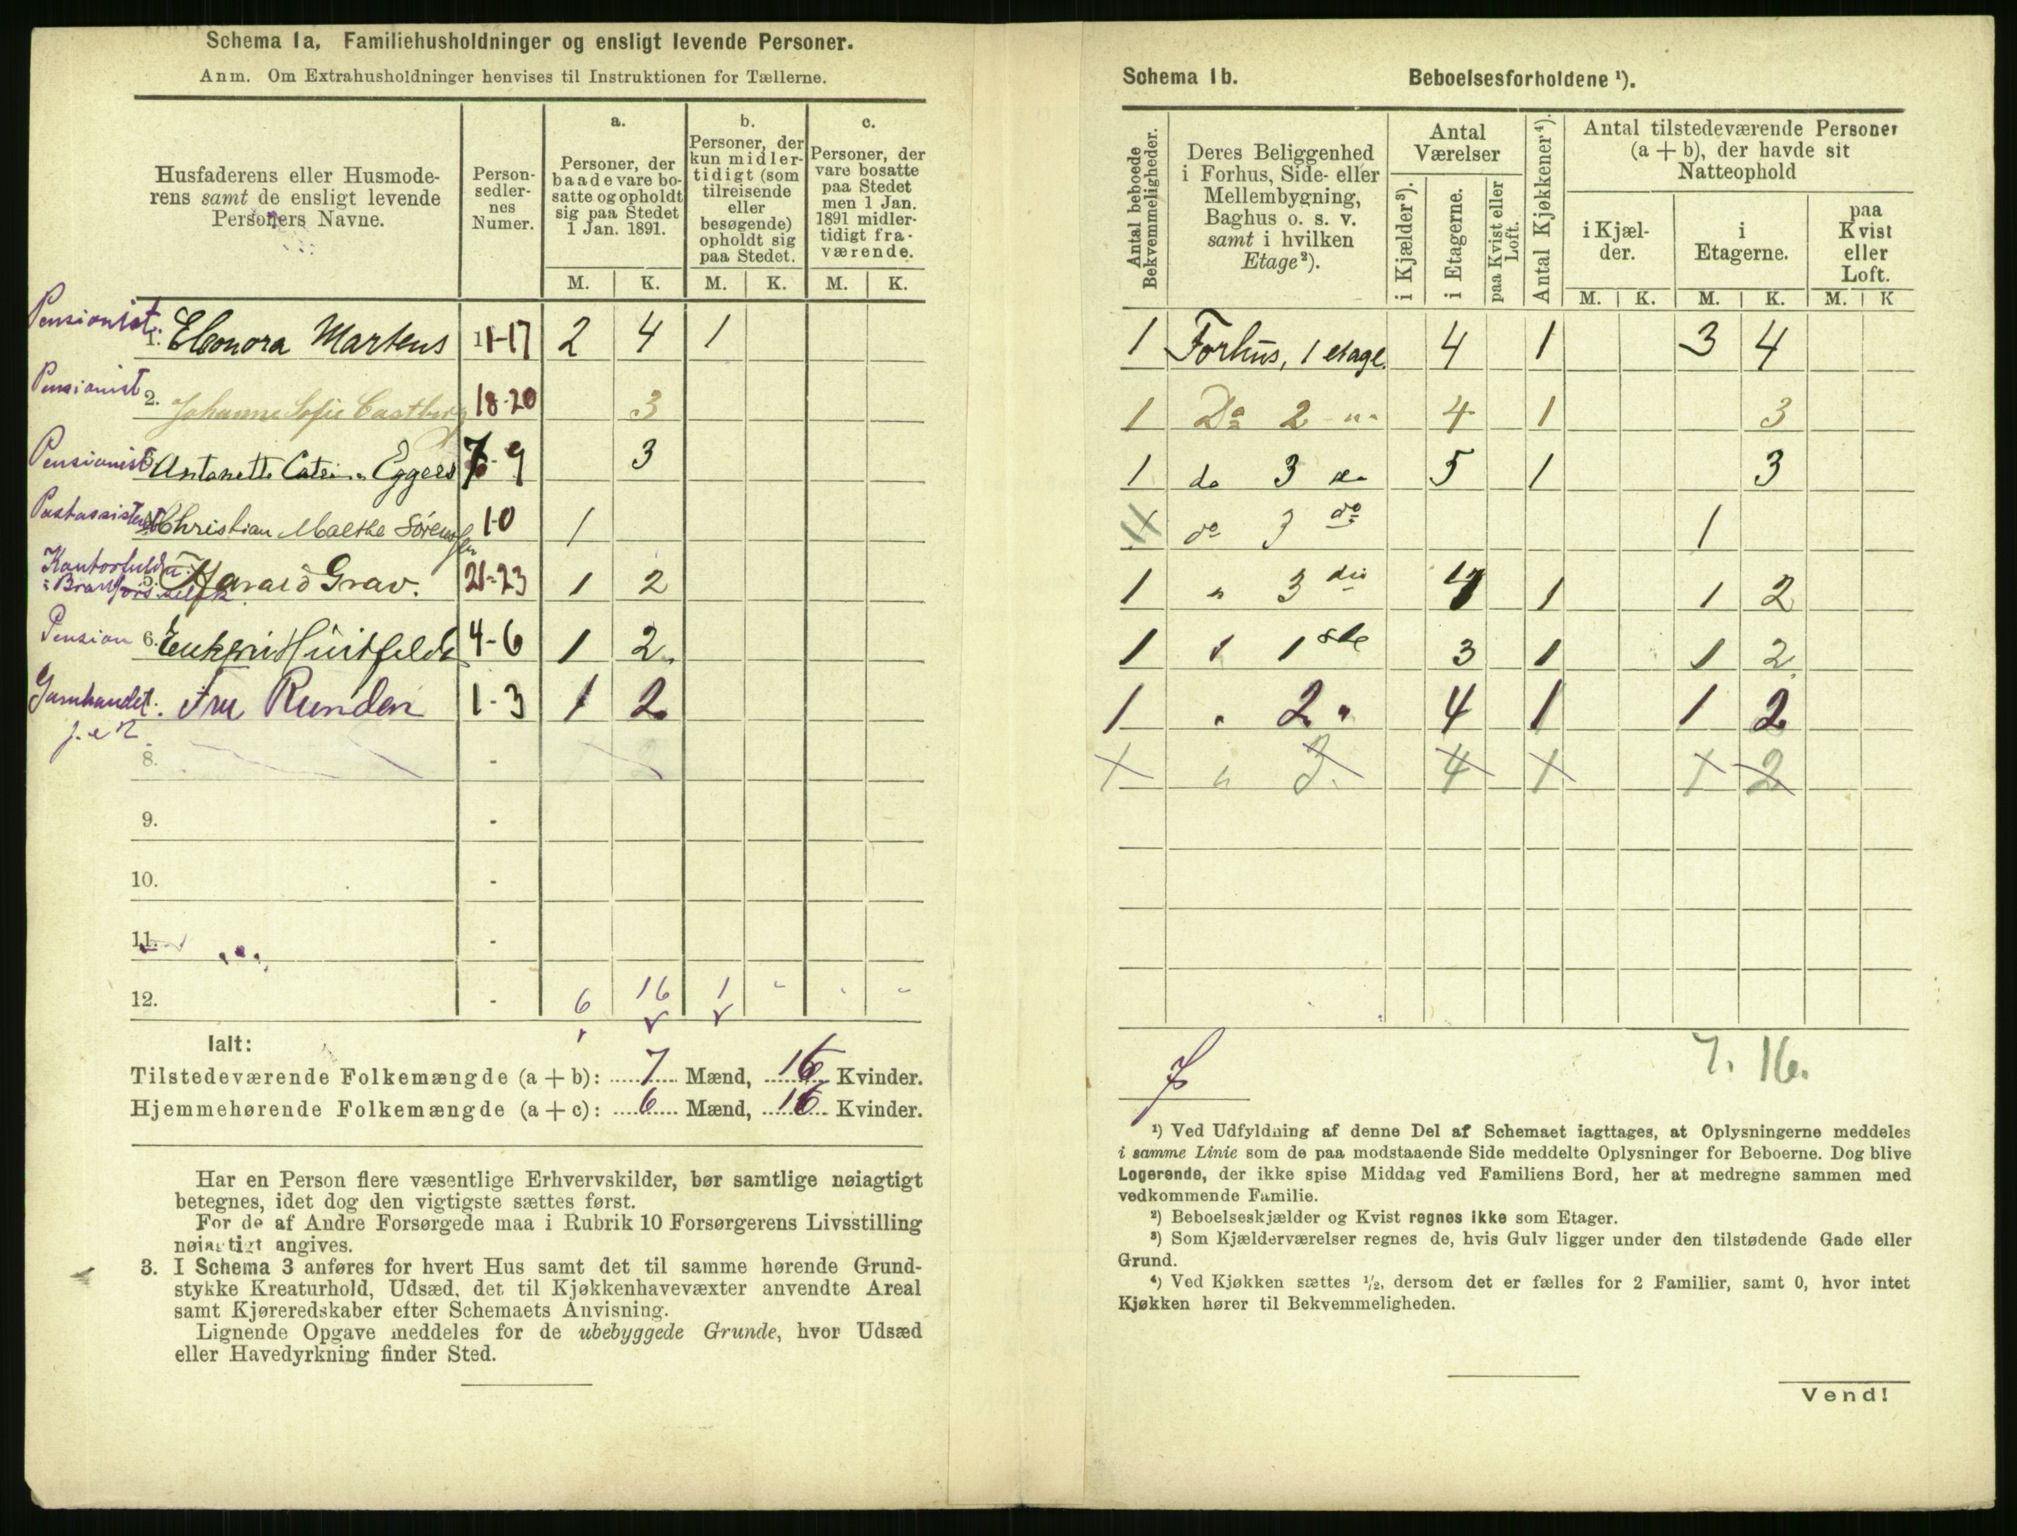 Schema 1a. Familiehusholdninger og ensligt levende Personer.
Anm. Om Extrahusholdninger henvises til Instruktionen for Tællerne.
Husfaderens eller Husmode-
rens samt de ensligt levende
Personers Navne.
Person-
sedler-
nes
Numer.
a.
Personer, der
baade vare bo-
satte og opholdt
sig paa Stedet
1 Jan. 1891.
b.
Personer, der
kun midler-
tidigt (som
tilreisende
eller
besøgende)
opholdt sig
paa Stedet.
c.
Personer, der
vare bosatte
paa Stedet
men 1 Jan.
1891 midler-
tidigt fra-
værende.
M. K. M. K. M. K.
Pensionist
1. Eleonora Martens 11-17 2 4 1
Pensionist
2. Johanne Sofie Castberg 18-20 3
Pensionist 3. Antonette Eggers 7-9 3
Postassistent Christian Malthe Sørensen 1-0 1
5. Harald Grav. 21-23 1 2
Pension 6. Huitfeldt 4-6 1 2
Fru Runden 1-3 1 2
8. -
9. -
10. -
11. -
12. - 6 16 1 " " "
Ialt:
Tilstedeværende Folkemængde (a + b): 7 Mænd, 16 Kvinder.
Hjemmehørende Folkemængde (a + c): 6 Mænd, 16 Kvinder.
Har en Person flere væsentlige Erhvervskilder, bør samtlige nøiagtigt
betegnes, idet dog den vigtigste sættes først.
For de af Andre Forsørgede maa i Rubrik 10 Forsørgerens Livsstilling
nøiagtigt angives.
3. I Schema 3 anføres for hvert Hus samt det til samme hørende Grund-
stykke Kreaturhold, Udsæd, det til Kjøkkenhavevæxter anvendte Areal
samt Kjøreredskaber efter Schemaets Anvisning.
Lignende Opgave meddeles for de ubebyggede Grunde, hvor Udsæd
eller Havedyrkning finder Sted.
Schema 1b. Beboelsesforholdene ¹).
Antal beboede
Bekvemmeligheder.
Deres Beliggenhed
i Forhus, Side- eller
Mellembygning,
Baghus o. s. v.
samt i hvilken
Etage²).
Antal
Værelser
i Kjælder³).
i Etagerne.
paa Kvist eller
Loft.
Antal Kjøkkener⁴).
Antal tilstedeværende Personer
(a + b), der havde sit
Natteophold
i Kjæl-
der.
i
Etagerne.
paa
Kvist
eller
Loft.
M. K. M. K. M. K
1 Forhus, 1 etage 4 1 3 4
1 Do 2 4 1 3
1 do 3 5 1 3
do 3 do 1
1 " 3 die 1 1 2
1 " 1ste 3 1 1 2
1 " 2 " 4 1 1 2
1 " 3. 4 1 1 2
7. 16.
¹) Ved Udfyldning af denne Del af Schemaet iagttages, at Oplysningerne meddeles
i samme Linie som de paa modstaaende Side meddelte Oplysninger for Beboerne. Dog blive
Logerende, der ikke spise Middag ved Familiens Bord, her at medregne sammen med
vedkommende Familie.
²) Beboelseskjælder og Kvist regnes ikke som Etager.
³) Som Kjælderværelser regnes de, hvis Gulv ligger under den tilstødende Gade eller
Grund.
⁴) Ved Kjøkken sættes ½, dersom det er fælles for 2 Familier, samt 0, hvor intet
Kjøkken hører til Bekvemmeligheden.
Vend!